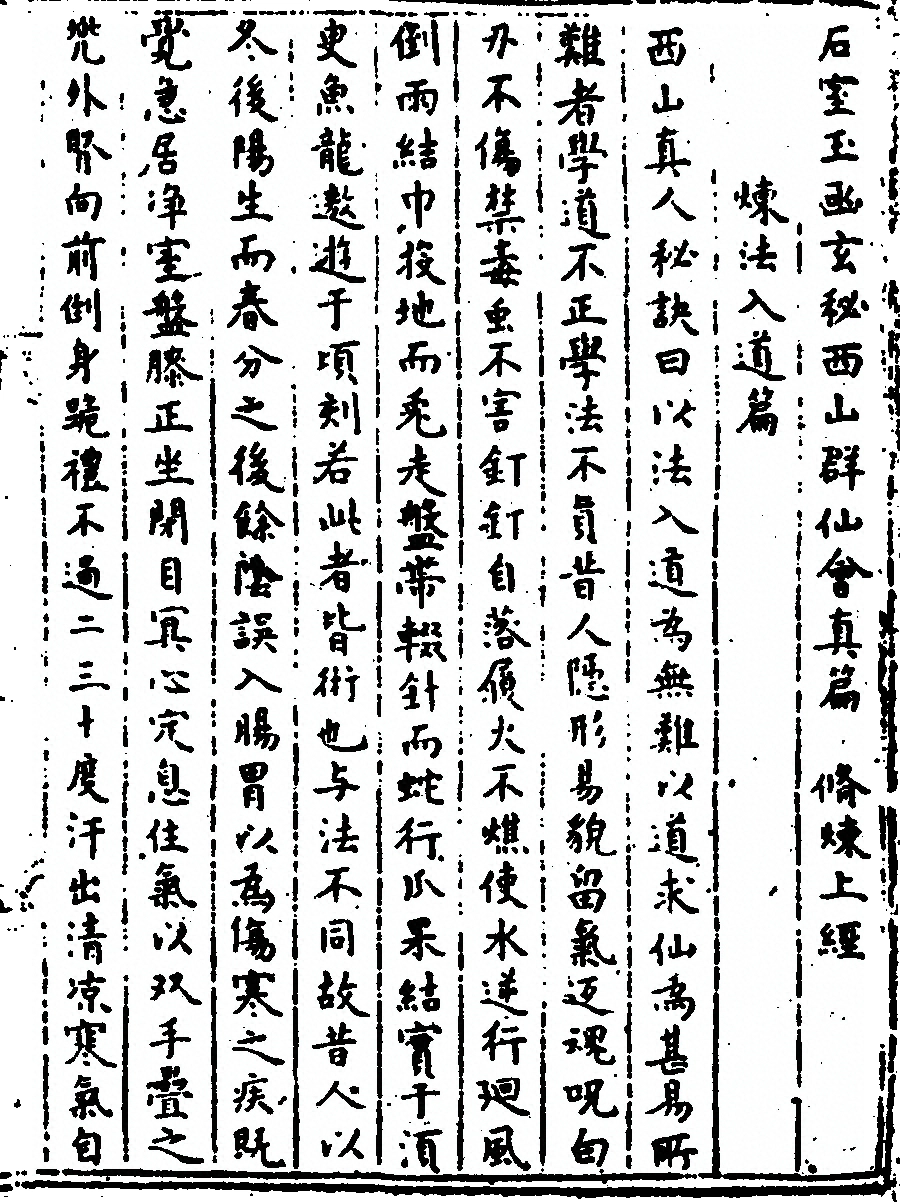 石室玉函玄秘西山群仙會真篇 脩煉上經
煉法入道篇
西山真人秘訣曰以法入道為無難以道求仙為甚易所
難者學道不正學法不員昔人隱形易貌留氣迈魂呪白
刃不傷禁毒虫不害釘釘自落傾火不燋使水逆行廻風
倒雨結巾投地而兎走盤帶輟針而蛇行瓜果結實于須
臾魚龍遨遊于頃刻若此者皆術也与法不同故昔人以
冬後陽生而春分之後餘陰誤入腸胃以為傷寒之疾既
覺急居净室盤膝正坐閉目冥心定息住氣以双手疊之
兠外腎向前倒身跪禮不過二三十度汗出清凉寒氣自